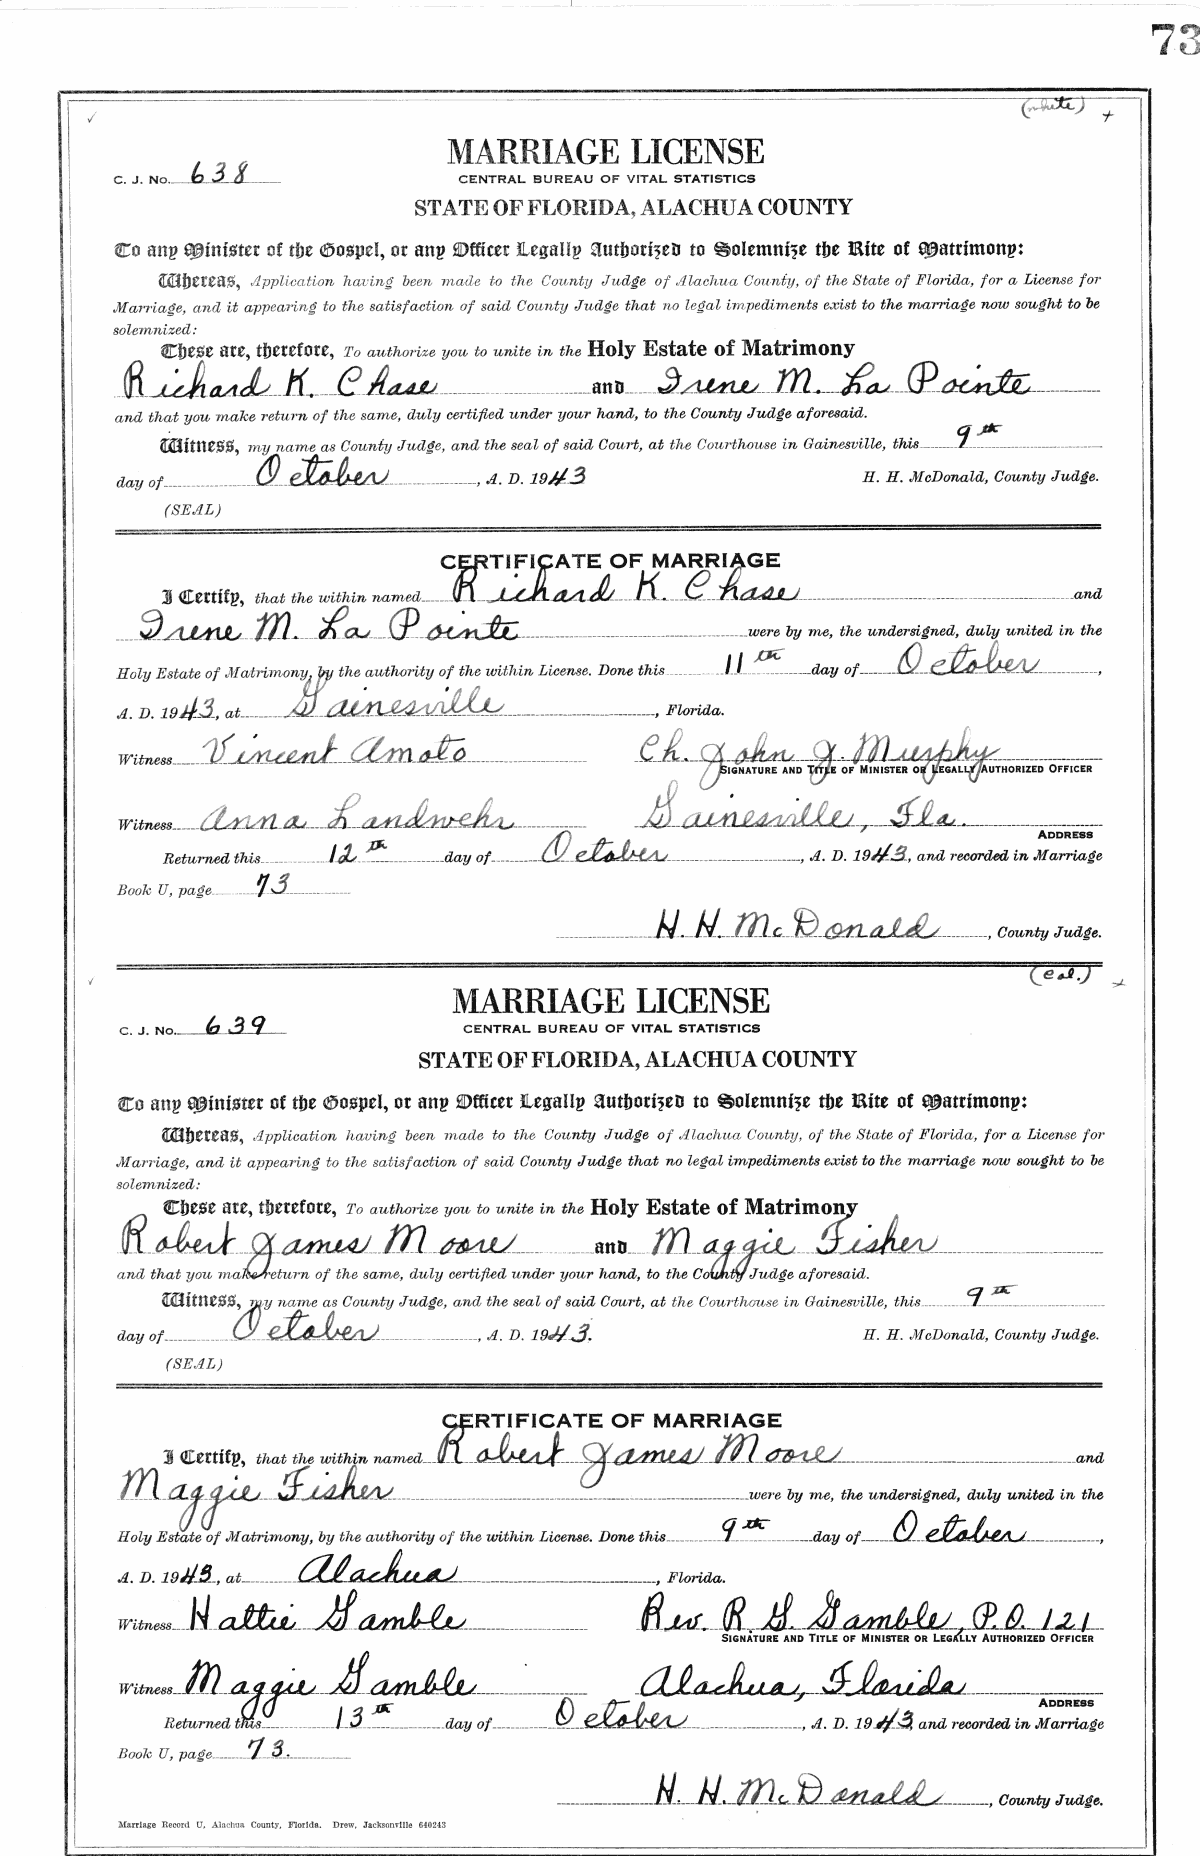 73
(white) +
✓
MARRIAGE LICENSE
C. J. No. 638
CENTRAL BUREAU OF VITAL STATISTICS
STATE OF FLORIDA, ALACHUA COUNTY
To any Minister of the Gospel, or any Officer Legally Authorized to Solemnize the Rite of Matrimony:
Whereas, Application having been made to the County Judge of Alachua County, of the State of Florida, for a License for
Marriage, and it appearing to the satisfaction of said County Judge that no legal impediments exist to the marriage now sought to be
solemnized:
These are, therefore, To authorize you to unite in the Holy Estate of Matrimony
Richard K. Chase and Irene M. La Pointe
and that you make return of the same, duly certified under your hand, to the County Judge aforesaid.
Witness, my name as County Judge, and the seal of said Court, at the Courthouse in Gainesville, this 9th
day of October, A. D. 1943 H. H. McDonald, County Judge.
(SEAL)
CERTIFICATE OF MARRIAGE
I Certify, that the within named Richard K. Chase and
Irene M. La Pointe were by me, the undersigned, duly united in the
Holy Estate of Matrimony, by the authority of the within License. Done this 11th day of October,
A. D. 1943, at Gainesville, Florida.
Witness Vincent Amoto Ch. John J. Murphy
SIGNATURE AND TITLE OF MINISTER OR LEGALLY AUTHORIZED OFFICER
Witness Anna Landwehr Gainesville, Fla.
ADDRESS
Returned this 12th day of October, A. D. 1943, and recorded in Marriage
Book U, page 73
H. H. McDonald, County Judge.
(Col.) +
✓
MARRIAGE LICENSE
C. J. No. 639
CENTRAL BUREAU OF VITAL STATISTICS
STATE OF FLORIDA, ALACHUA COUNTY
To any Minister of the Gospel, or any Officer Legally Authorized to Solemnize the Rite of Matrimony:
Whereas, Application having been made to the County Judge of Alachua County, of the State of Florida, for a License for
Marriage, and it appearing to the satisfaction of said County Judge that no legal impediments exist to the marriage now sought to be
solemnized:
These are, therefore, To authorize you to unite in the Holy Estate of Matrimony
Robert James Moore and Maggie Fisher
and that you make return of the same, duly certified under your hand, to the County Judge aforesaid.
Witness, my name as County Judge, and the seal of said Court, at the Courthouse in Gainesville, this 9th
day of October, A. D. 1943. H. H. McDonald, County Judge.
(SEAL)
CERTIFICATE OF MARRIAGE
I Certify, that the within named Robert James Moore and
Maggie Fisher were by me, the undersigned, duly united in the
Holy Estate of Matrimony, by the authority of the within License. Done this 9th day of October,
A. D. 1943, at Alachua, Florida.
Witness Hattie Gamble Rev. R. G. Gamble, P.O. 121
SIGNATURE AND TITLE OF MINISTER OR LEGALLY AUTHORIZED OFFICER
Witness Maggie Gamble Alachua, Florida
ADDRESS
Returned this 13th day of October, A. D. 1943 and recorded in Marriage
Book U, page 73.
H. H. McDonald, County Judge.
Marriage Record U, Alachua County, Florida. Drew, Jacksonville 640243